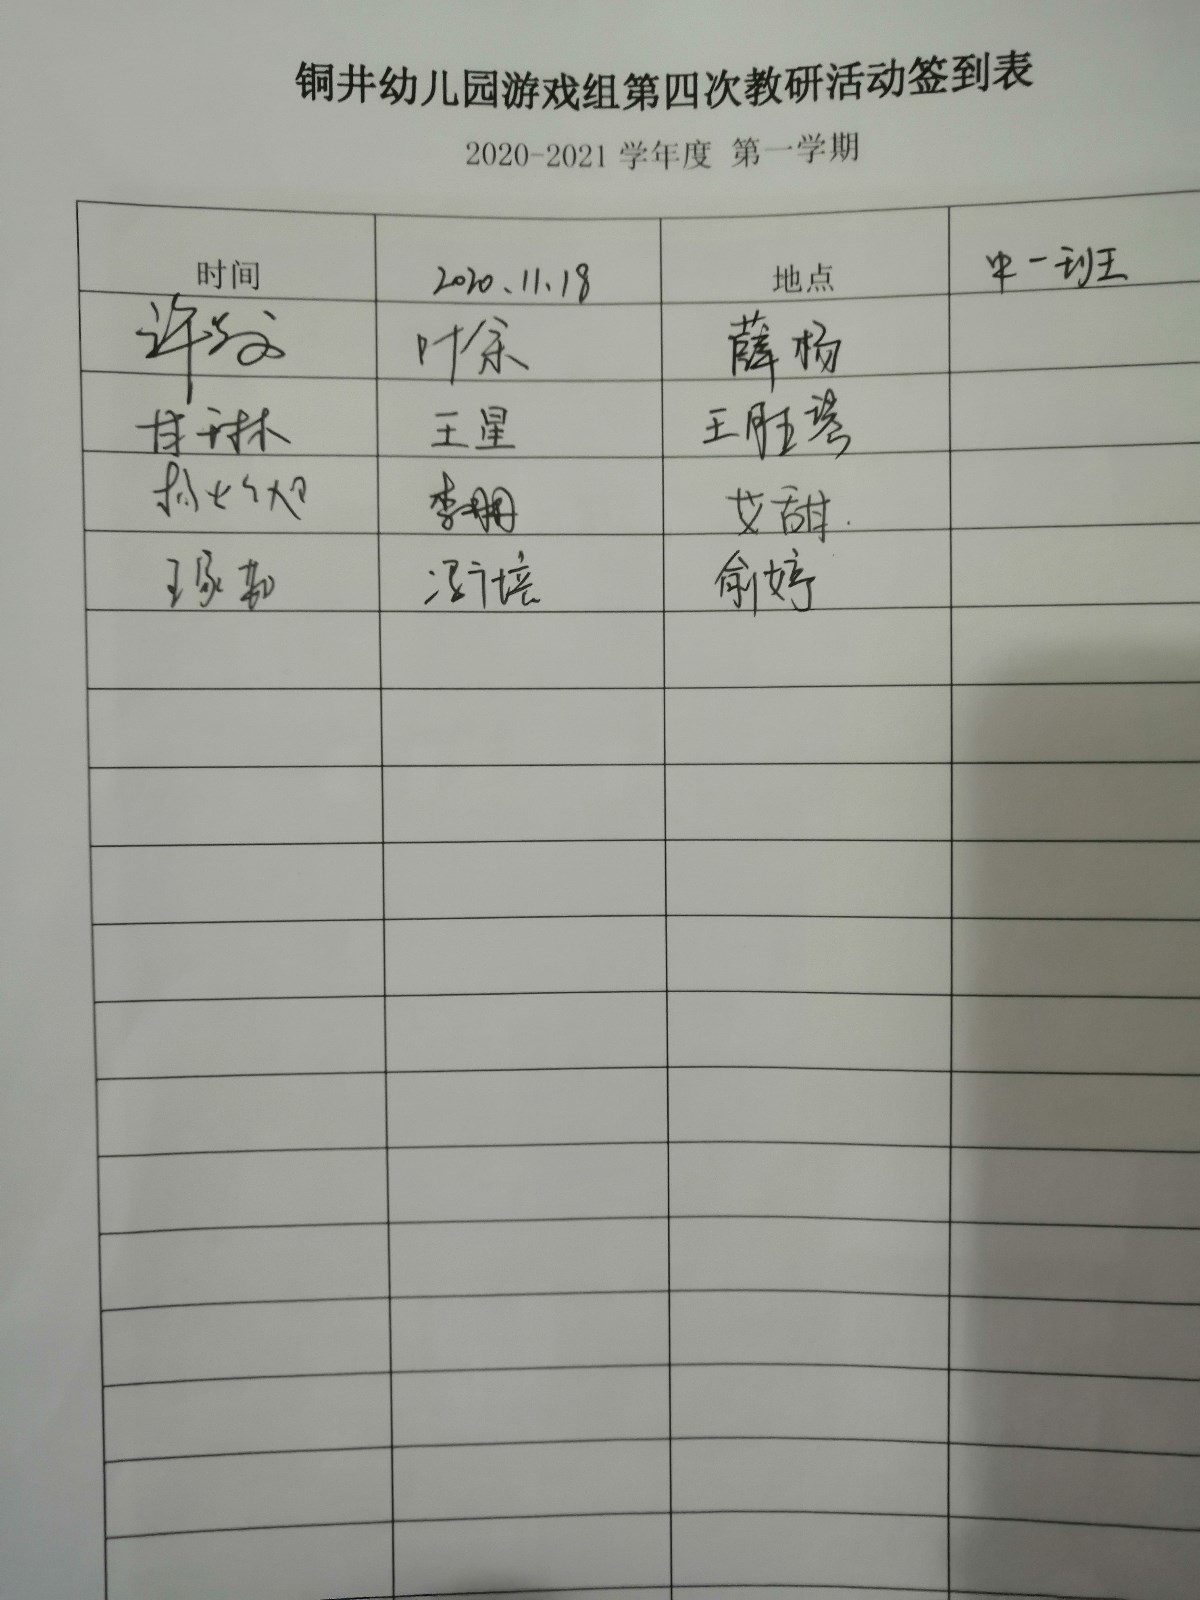 铜井幼儿园游戏组第四次教研活动签到表
2020-2021 学年度 第一学期
时间 2020.11.18 地点 中一班
许 叶余 薛杨
甘琳 王星 王胜琴
李珊 艾甜
王家 冯培 俞婷